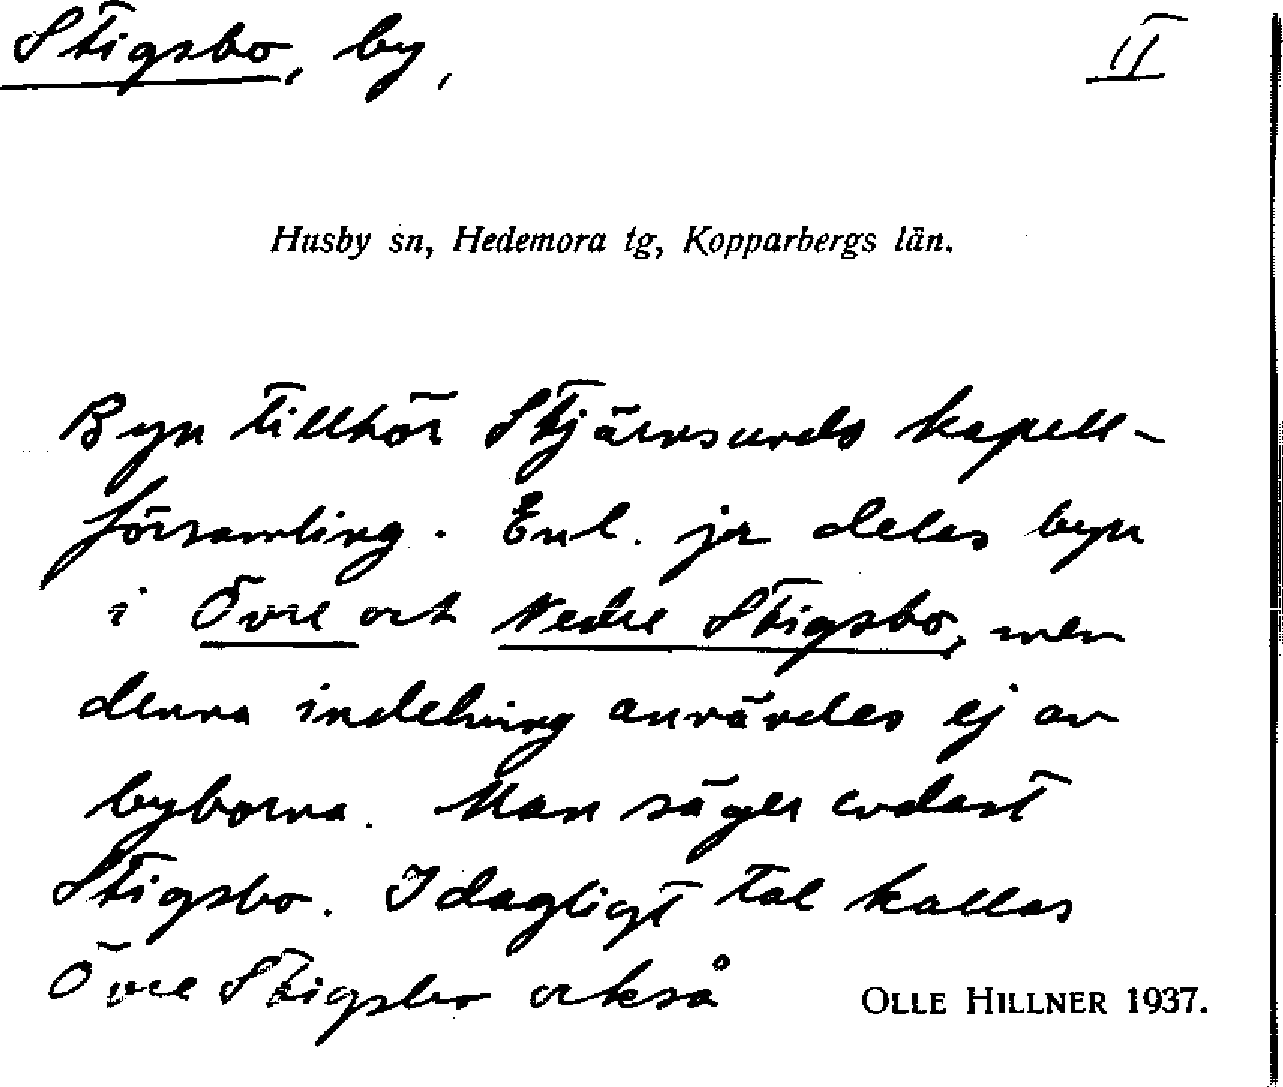 Stigsbo, by, II
Husby sn, Hedemora tg, Kopparbergs län.
Byn tillhör Stjärnsunds kapell-
församling. Enl. jr delas byn
i Övre och Nedre Stigsbo, men
denna indelning användes ej av
byborna. Man säger endast
Stigsbo. I dagligt tal kallas
Övre Stigsbo också
OLLE HILLNER 1937.